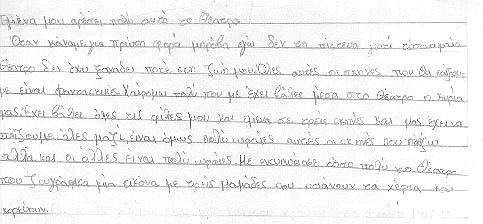 Εμένα μου αρέσει πολύ αυτό το θέατρο
Όταν κάναμε για πρώτη φορά πρόβα εγώ δεν το πίστευα γιατί τέτοιο
θέατρο δεν έχω ξαναδεί ποτέ στη ζωή μου. Όλες αυτές οι σκηνές που θα
με είναι φανταστικές. Χαίρομαι πολύ που με έχει βάλει μέσα στο θέατρο η κυρία
μας. Έχει βάλει όλες τις φίλες μου και εμένα σε τρεις σκηνές και μας έχει να
παίζουμε όλες μαζί, είναι όμως πολύ ωραίες αυτές οι σκηνές που παίζω
αλλά και οι άλλες είναι πολύ ωραίες. Με εντυπωσίασε τόσο πολύ το θέατρο
που ζωγράφισα μια εικόνα με τρεις μαμάδες που πιάνουν τα χέρια και
χορεύουν.